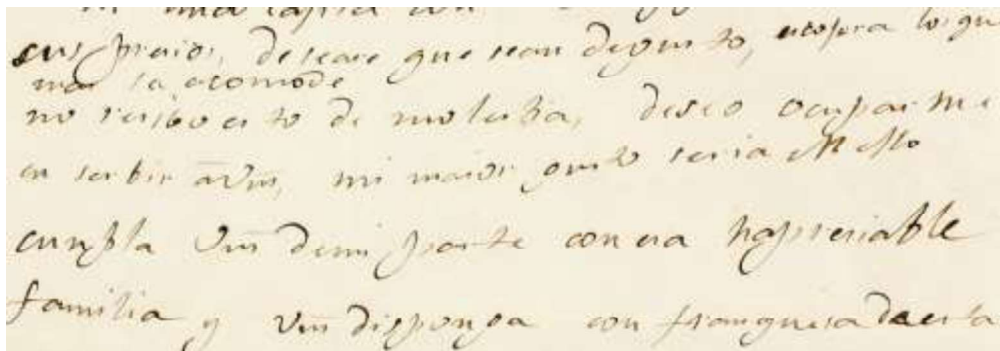 una
sus presios, deseare que sean de gusto, escojera los qu
mas la acomode
no resibo esto de molestia, deseo ocuparme
en serbir a Vm, mi maior gusto seria ello
cunpla Vm de mi parte con esa hapresiable
familia y Vm disponga con franquesa de esta